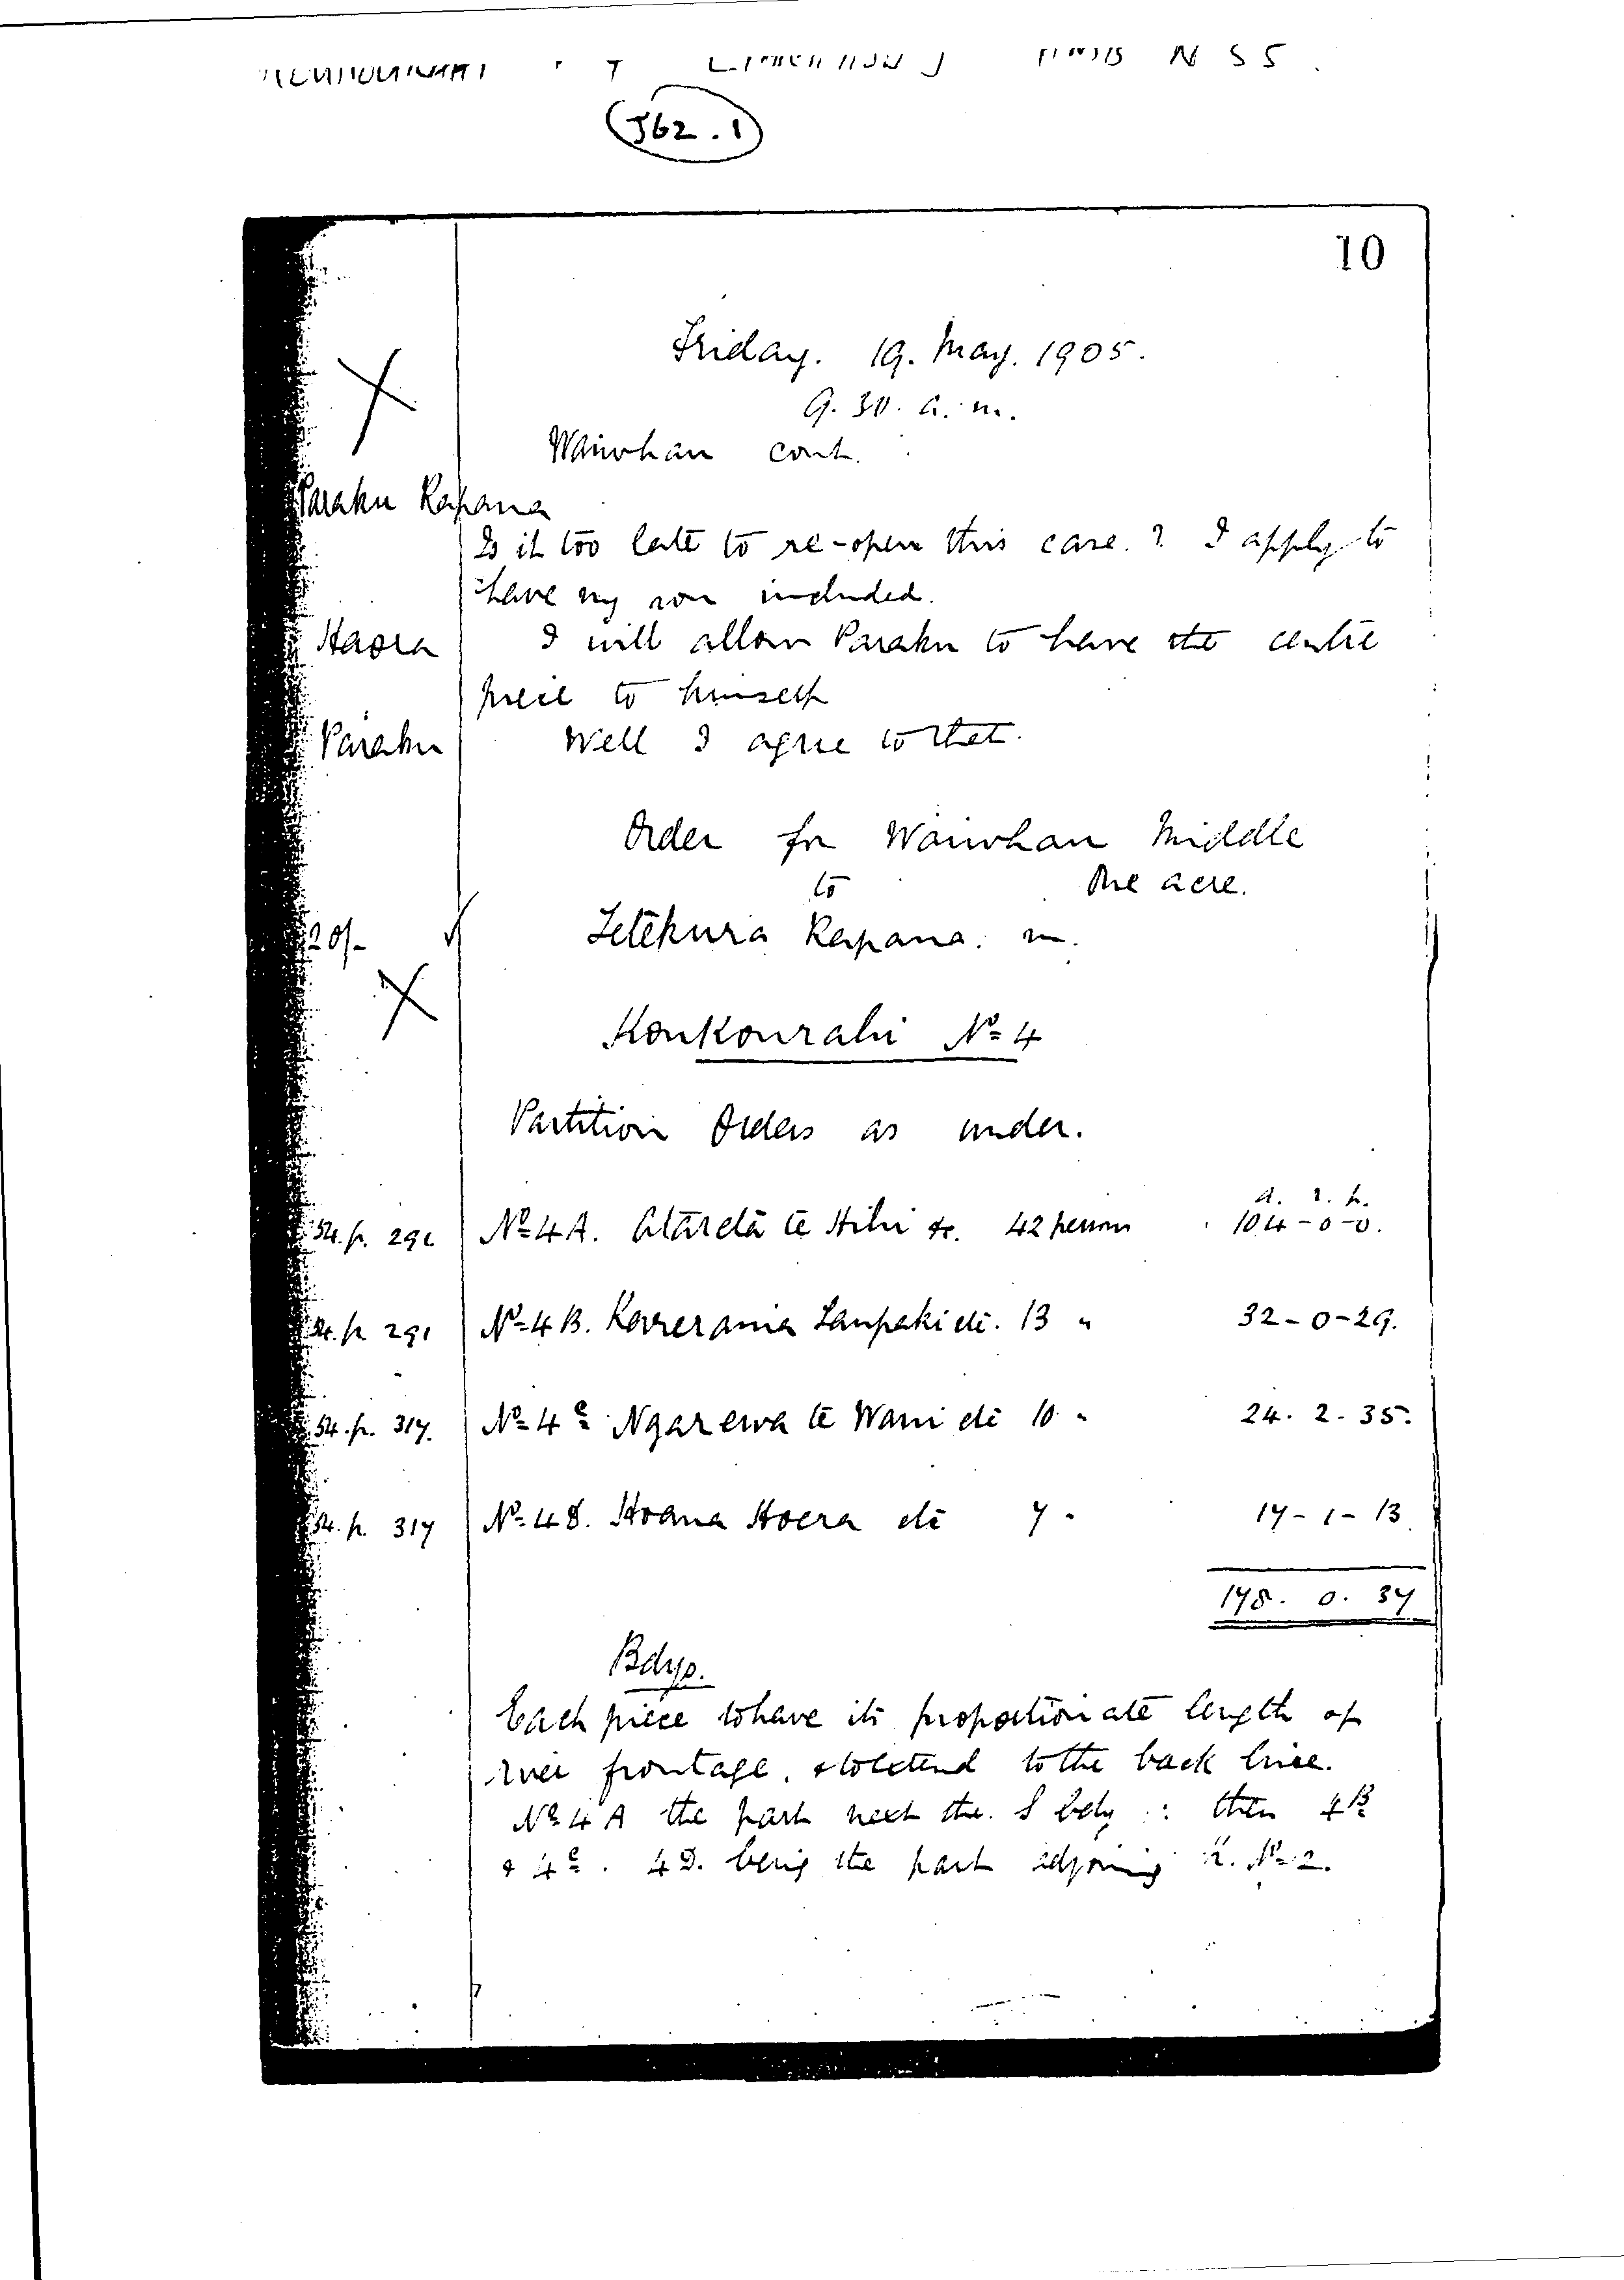 N 55
J62.1
10
Friday. 19. May. 1905.
9.30. a.m.
Waiwhau cont.
Paraku Rapana
Is it too late to re-open this case? I apply to
have my son included.
Haora I will allow Paraku to have the centre
piece to himself
Paraku Well I agree to that.
Order for Waiwhau Middle
to One acre.
20/- Tetekura Rapana. m.
Koukourahi No 4
Partition Orders as under.
a. r. p.
54. p. 291 No 4A. Atareta te Hihi &c. 42 persons 104-0-0.
54. p. 291 No 4B. Kererama Taupaki etc. 13 " 32-0-29.
54. p. 317. No 4C Ngarewa te Wani etc 10 " 24. 2. 35.
54. p. 317 No 4D. Hoana Hoera etc 7 " 17-1-13
178. 0. 37
Bdys.
Each piece to have its proportionate length of
river frontage, & to extend to the back line.
No 4A the part next the S bdy: then 4B
& 4C. 4D. being the part adjoining K. No 2.